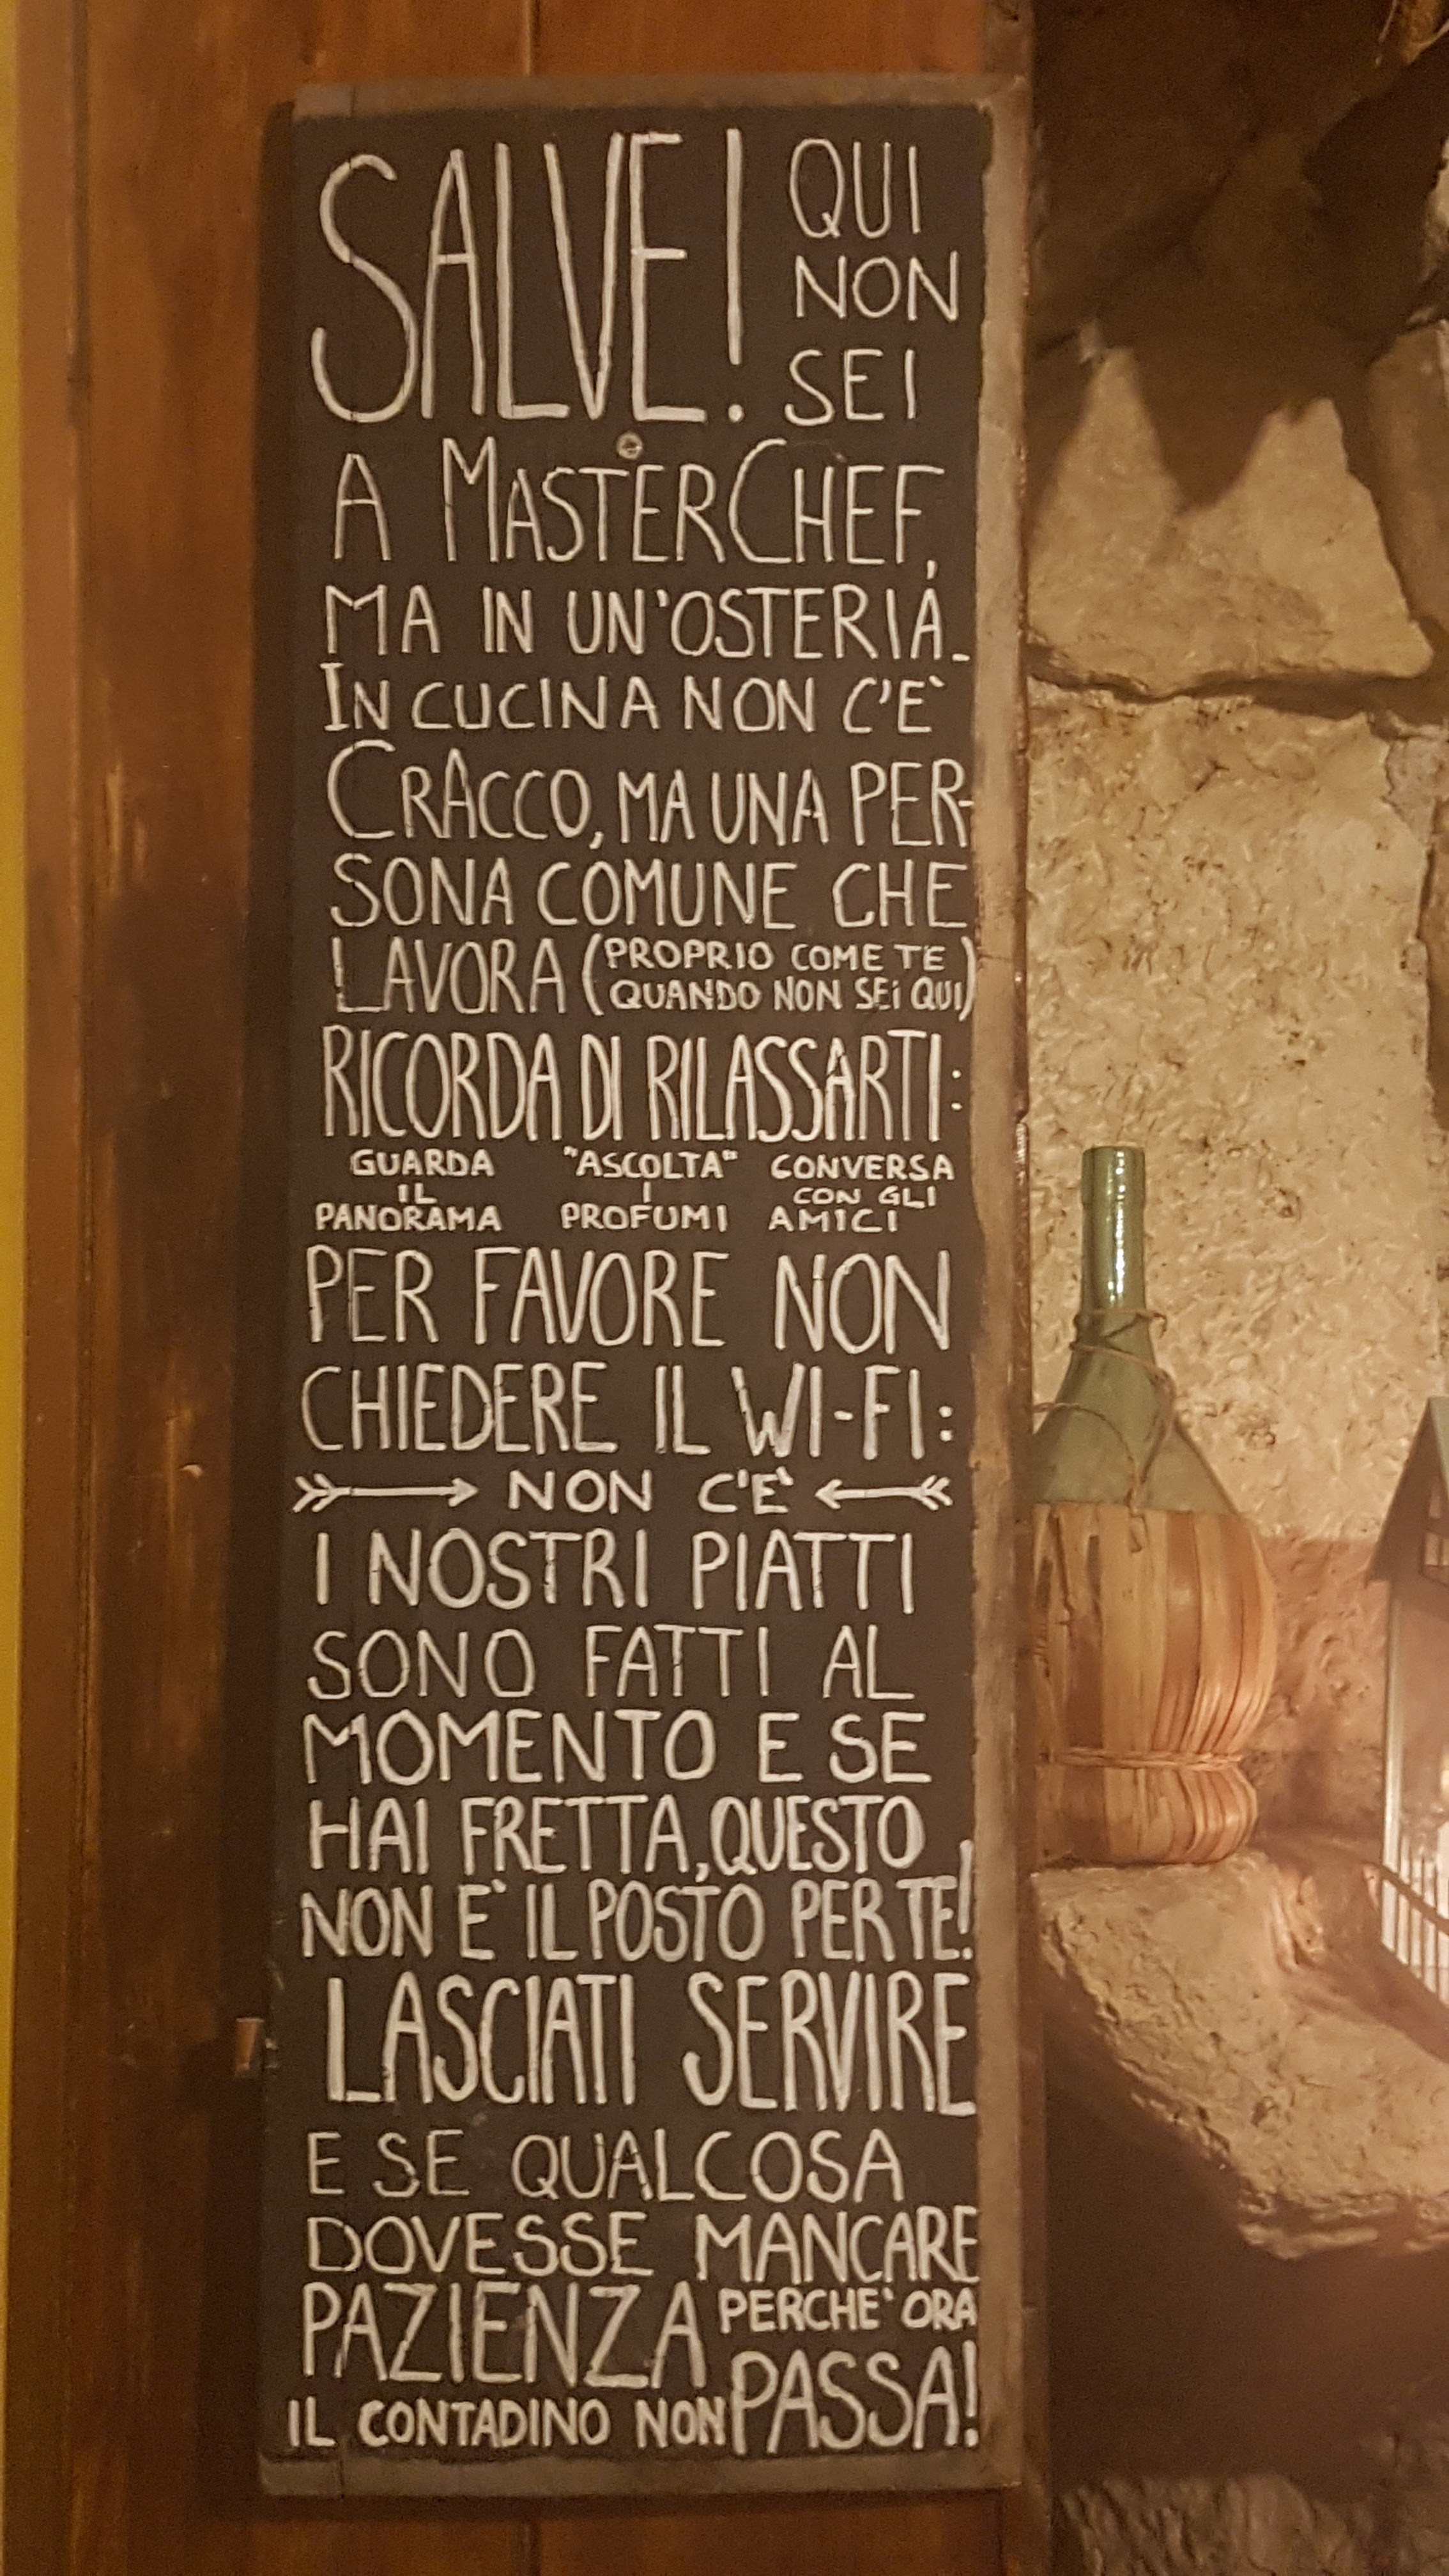 SALVE! QUI
NON
SEI
A MASTERCHEF,
MA IN UN'OSTERIA.
IN CUCINA NON C'E'
CRACCO, MA UNA PER-
SONA COMUNE CHE
LAVORA (PROPRIO COME TE
QUANDO NON SEI QUI)
RICORDA DI RILASSARTI:
GUARDA "ASCOLTA" CONVERSA
IL I CON GLI
PANORAMA PROFUMI AMICI
PER FAVORE NON
CHIEDERE IL WI-FI:
NON C'E'
I NOSTRI PIATTI
SONO FATTI AL
MOMENTO E SE
HAI FRETTA, QUESTO
NON E' IL POSTO PER TE!
LASCIATI SERVIRE
E SE QUALCOSA
DOVESSE MANCARE
PAZIENZA PERCHE' ORA
IL CONTADINO NON PASSA!